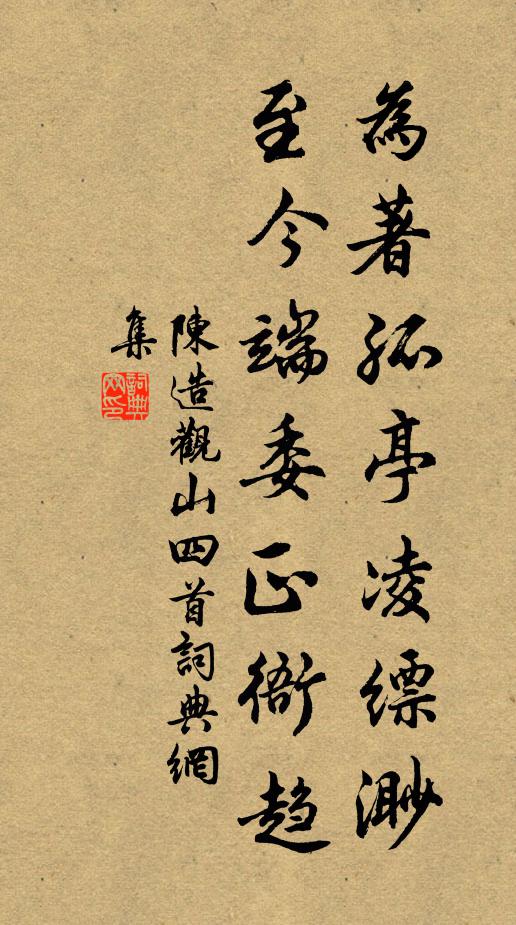 為著孤亭凌縹渺
至今端委正衙趨
陳造觀山四首詞典網
集
詞典網印